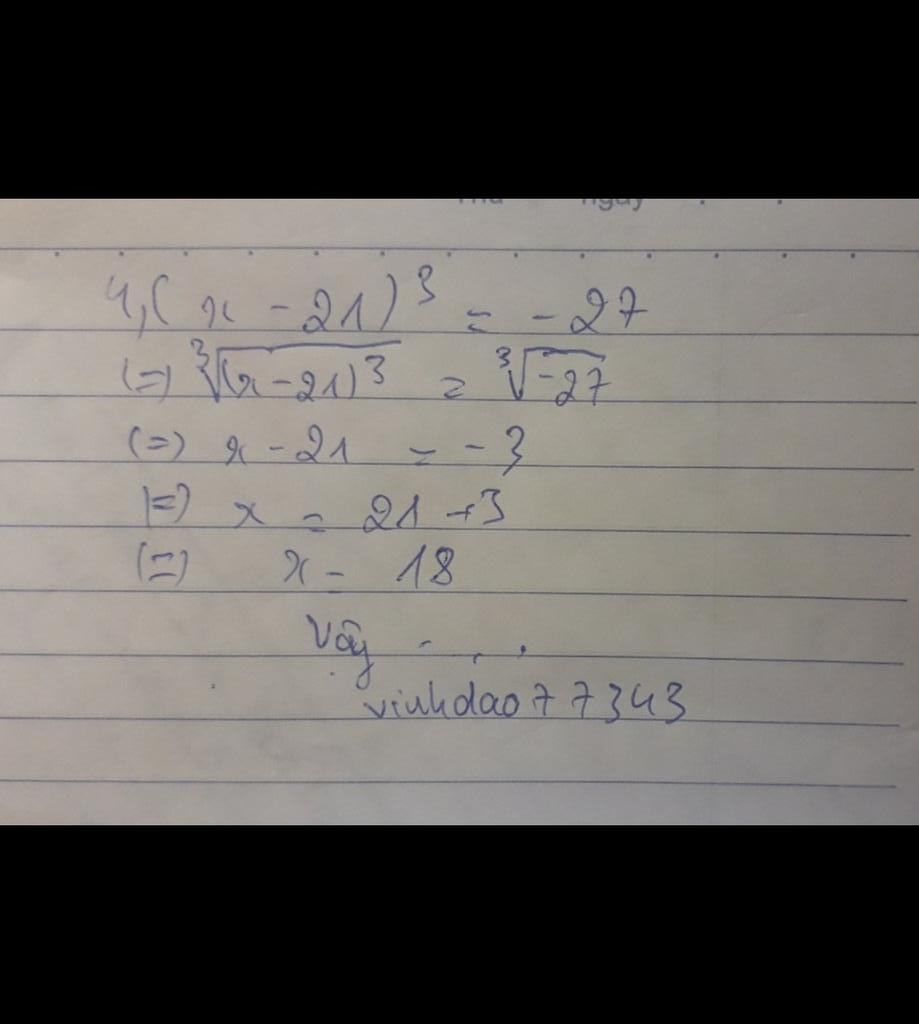 Thứ ngày . .
4, (x - 21)³ = - 27
(=) ∛(x - 21)³ = ∛-27
(=) x - 21 = - 3
(=) x = 21 + 3
(=) x = 18
Vậy - . .
vinhdao77343